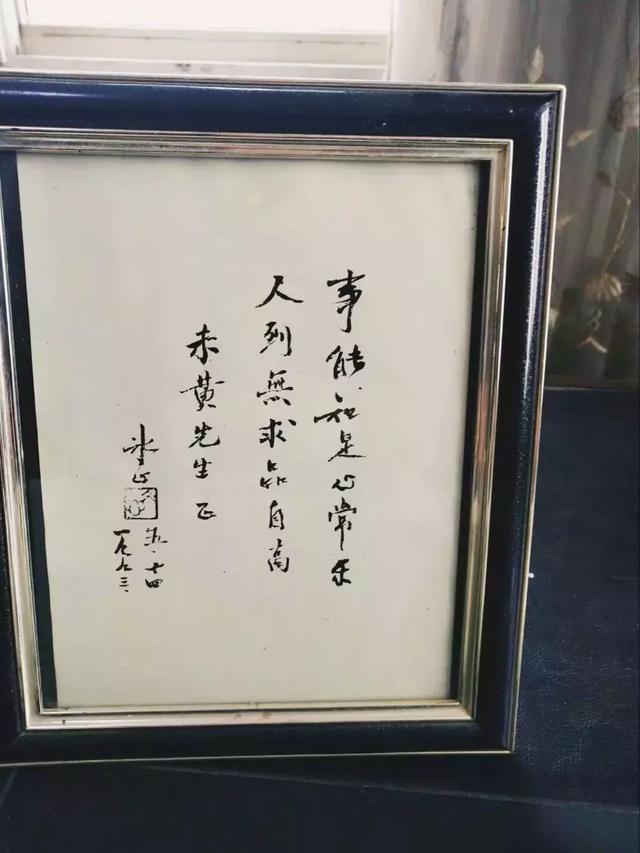 事能知足心常乐
人到無求品自高
未黄先生 正
冰心
五.十四
一九九三.